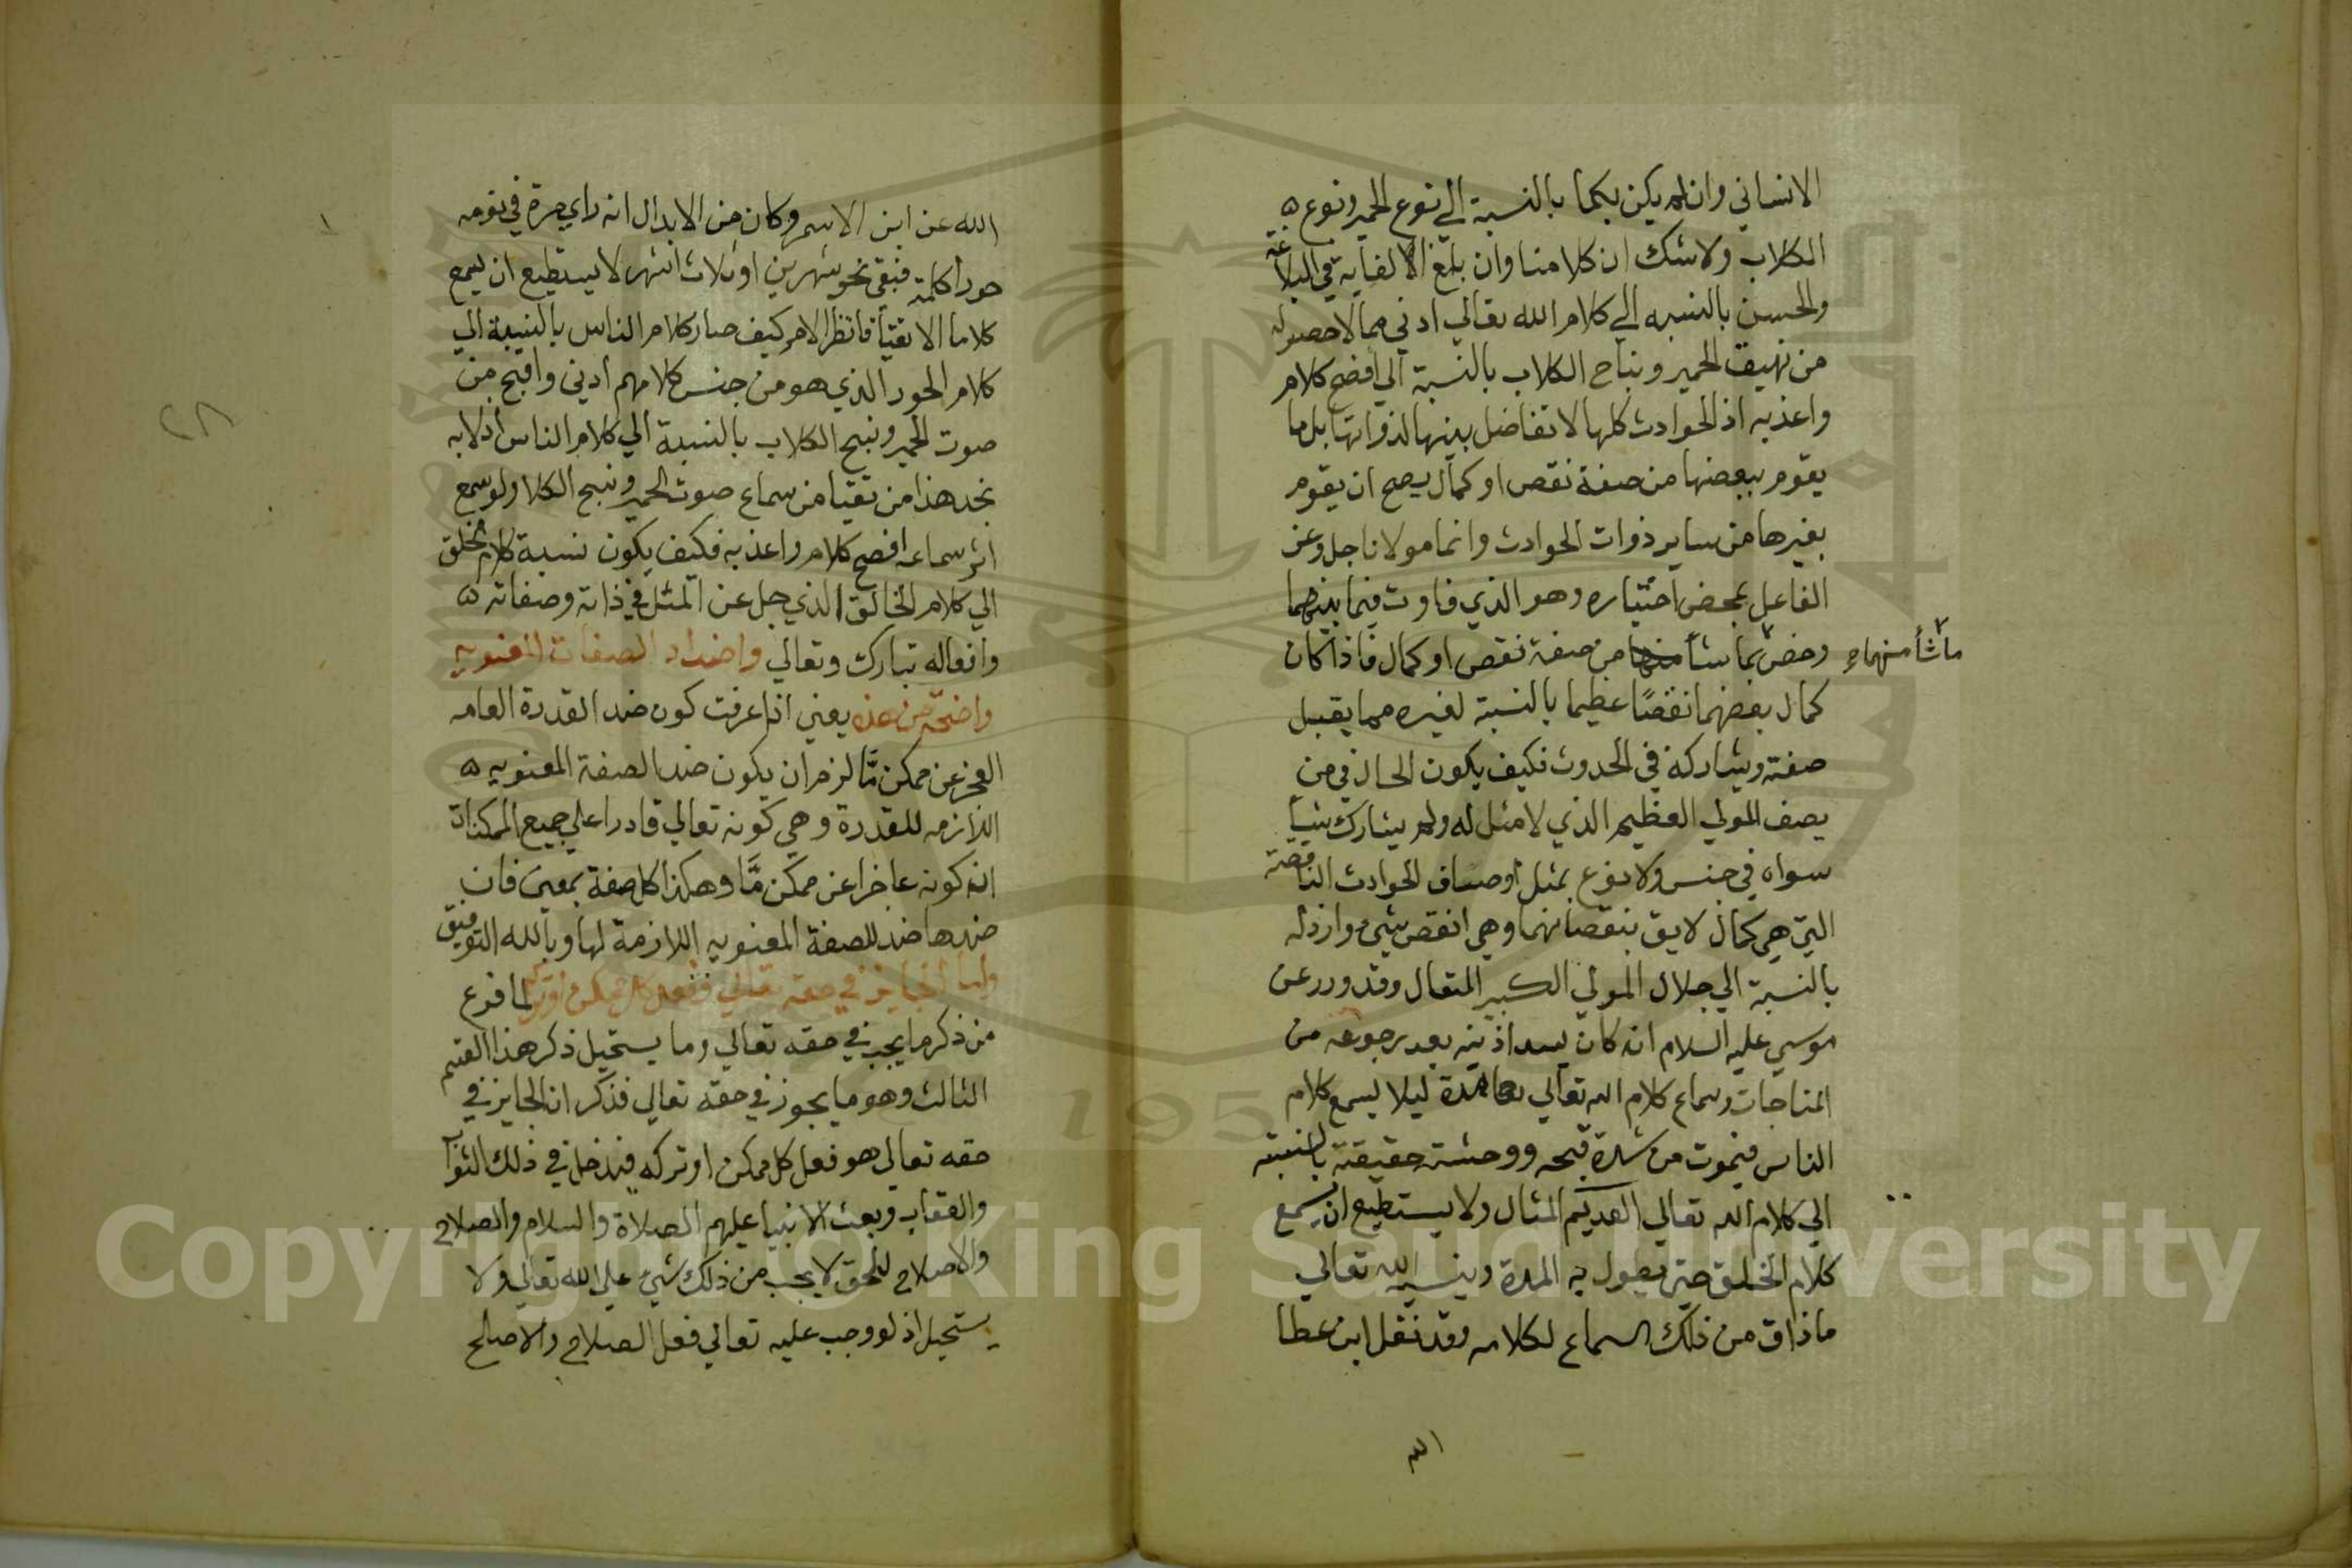 الانساني وان لم يكن بكما بالنسبة الي نوع الحمير ونوع
الكلاب ولا شك ان كلامنا وان بلغ الالغاية في البلاغة
والحسن بالنسبه الي كلام الله تعالي ادني مما لا حصر له
من نهيق الحمير ونباح الكلاب بالنسبة الي افصح كلام
واعذبه اذ الحوادث كلها لا تفاضل بينها لذواتها بل ما
يقوم ببعضها من صفة نقص او كمال يصح ان يقوم
بغيرها من ساير ذوات الحوادث وانما مولانا جل وعز
الفاعل بمحض اختياره وهو الذي فاوت فيما بينهما
وخص بما شأ منها من صفة نقص او كمال فاذا كان
ما شأ منهما
كمال بعضهما نقصًا عظيما بالنسبة لغيره مما يقبل
صفته ويشاركه في الحدوث فكيف يكون الحال في من
يصف المولي العظيم الذي لا مثل له ولم يشارك شيأ
سواه في جنس ولا نوع بمثل اوصاف الحوادث الناقصة
التي هي كمال لايق بنقصانهما وهي انقص شيء وارذله
بالنسبة الي جلال المولي الكبير المتعال وقد ورد عن
موسي عليه السلام انه كان يسد اذنيه بعد رجوعه من
المناجات وسماع كلام الله تعالي مدة ليلا يسمع كلام
الناس فيموت من شدة قبحه ووحشته حقيقة بالنسبته
الي كلام الله تعالي العديم المثال ولا يستطيع ان يسمع
كلام الخلق حتى يطول به المدة وينسيه الله تعالي
ماذاق من ذلك السماع لكلامه وقد نقل ابن عطا
الله عن ابن الاسمر وكان من الابدال انه راي مرة في نومه
حورا كلمته فبقي نحو شهرين او ثلاث اشهر لا يستطيع ان يسمع
كلاما الا تقيأ فانظر الامر كيف صار كلام الناس بالنسبة الي
كلام الحور الذي هو من جنس كلامهم ادني واقبح من
صوت الحمير ونبح الكلاب بالنسبة الي كلام الناس اذ لا به
نجد هذا من تقيا من سماع صوت الحمير ونبح الكلا ولو سمع
اثر سماعه افصح كلام واعذبه فكيف يكون نسبة كلام الخلق
الي كلام الخالق الذي جل عن المثل في ذاته وصفاته
وافعاله تبارك وتعالي واضداد الصفات المعنويه
واضحة من هذه يعني اذا عرفت كون ضد القدرة العامه
العجز عن ممكن مَّا لزم ان يكون ضد الصفة المعنويه
اللازمه للقدرة وهي كونه تعالي قادرا علي جميع الممكنات
انه كونه عاجزا عن ممكن مَّا وهكذا كل صفة بمعنى فان
ضدها ضد للصفة المعنويه اللازمة لها وبالله التوفيق
واما الجايز في حقه تعالي ففعل كل ممكن او تركه لما فرغ
من ذكر ما يجب في حقه تعالي وما يستحيل ذكر هذا القسم
الثالث وهو ما يجوز في حقه تعالي فذكر ان الجايز في
حقه تعالي هو فعل كل ممكن او تركه فيدخل في ذلك الثواب
والعقاب وبعث الانبيا عليهم الصلاة والسلام والصلاح
والاصلاح للخق لا يجب من ذلك شيء علي الله تعالي ولا
يستحيل اذ لو وجب عليه تعالي فعل الصلاح والاصلح
Copyright © King Saud University
195